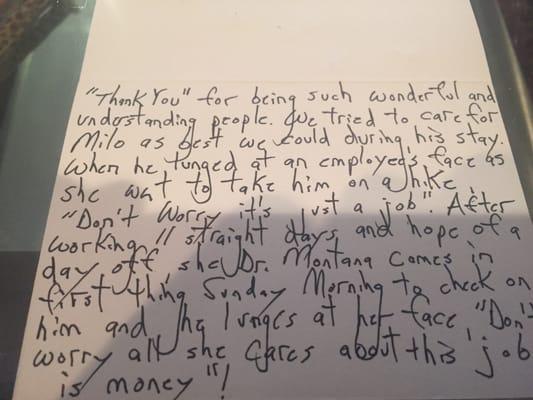 "Thank You" for being such wonderful and
understanding people. We tried to care for
Milo as best we could during his stay.
When he lunged at an employee's face as
she went to take him on a hike,
"Don't worry it's just a job". After
working 11 straight days and hope of a
day off she Dr. Montana comes in
first thing Sunday Morning to check on
him and he lunges at her face "Don't
worry all she cares about this job
is money"!